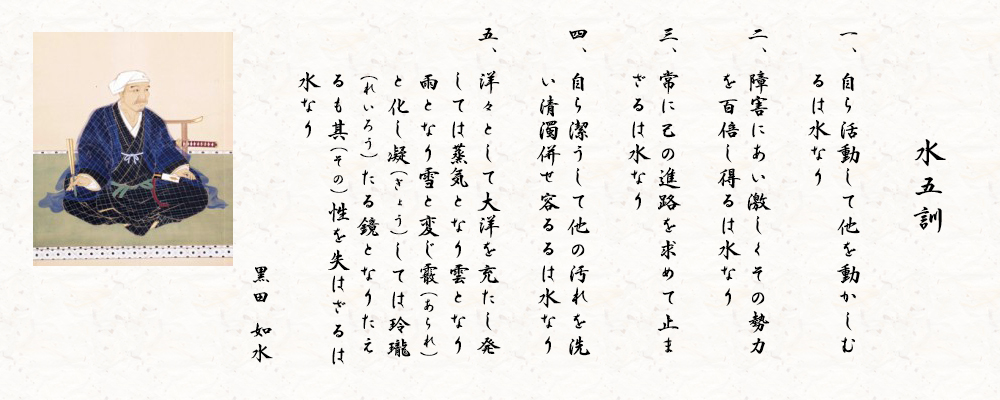 水五訓
一、自ら活動して他を動かしむ
るは水なり
二、障害にあい激しくその勢力
を百倍し得るは水なり
三、常に己の進路を求めて止ま
ざるは水なり
四、自ら潔うして他の汚れを洗
い清濁併せ容るるは水なり
五、洋々として大洋を充たし発
しては蒸気となり雲となり
雨となり雪と変じ霰(あられ)
と化し凝(ぎょう)しては玲瓏
(れいろう)たる鏡となりたえ
るも其(その)性を失はざるは
水なり
黒田 如水